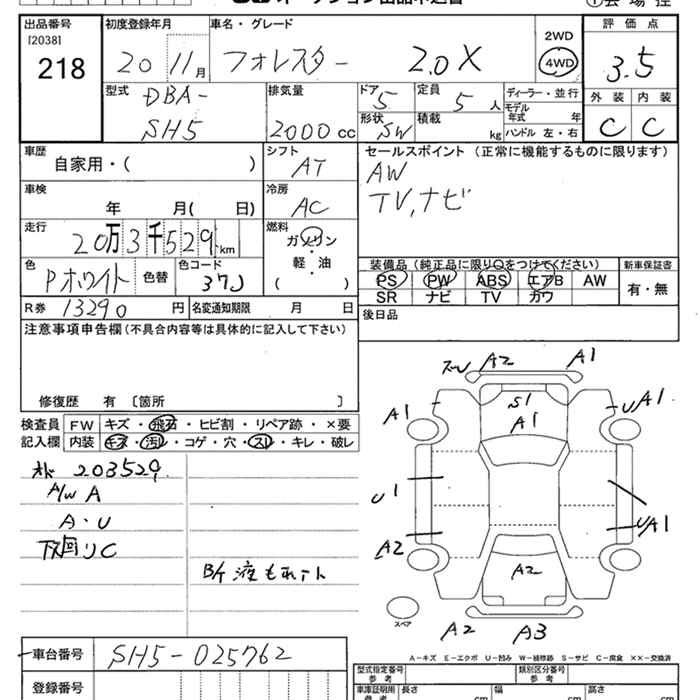 出品番号 初度登録年月 車名・グレード 評価点
[2038]
218 20 11月 フォレスター 2.0X 2WD 4WD 3.5
型式 DBA- 排気量 ドア 5 定員 5 人 ディーラー・並行 外装 内装
SH5 2000 cc 形状 SW 積載 kg モデル年式 年 ハンドル 左・右 C C
車歴 自家用・( ) シフト AT セールスポイント (正常に機能するものに限ります)
車検 年 月( 日) 冷房 AC AW
TV,ナビ
走行 20万3千529km 燃料 ガソリン・軽・油 ( )
色 Pホワイト 色替 色コード 37J 装備品 (純正品に限り○をつけてください) 新車保証書
PS PW ABS エアB AW 有・無
SR ナビ TV カワ
R券 13290 円 名変通知期限 月 日 後日品
注意事項申告欄 (不具合内容等は具体的に記入して下さい)
修復歴 有 [箇所 ]
検査員 FW キズ・飛石・ヒビ割・リペア跡・×要
記入欄 内装 キズ・汚れ・コゲ・穴・スレ・キレ・破レ
203529
A/W A
A・U
下回りC
B/K液もれ
A2 A1
S1
A1 A1 UA1
U1
A2 UA1
A2
スペア
A2 A3
A-キズ E-エクボ U-凹み W-補修跡 S-サビ C-腐食 ××-交換済
車台番号 SH5-025762 型式指定番号 類別区分番号
登録番号 車庫証明用 参考 長さ cm 幅 cm 高さ cm